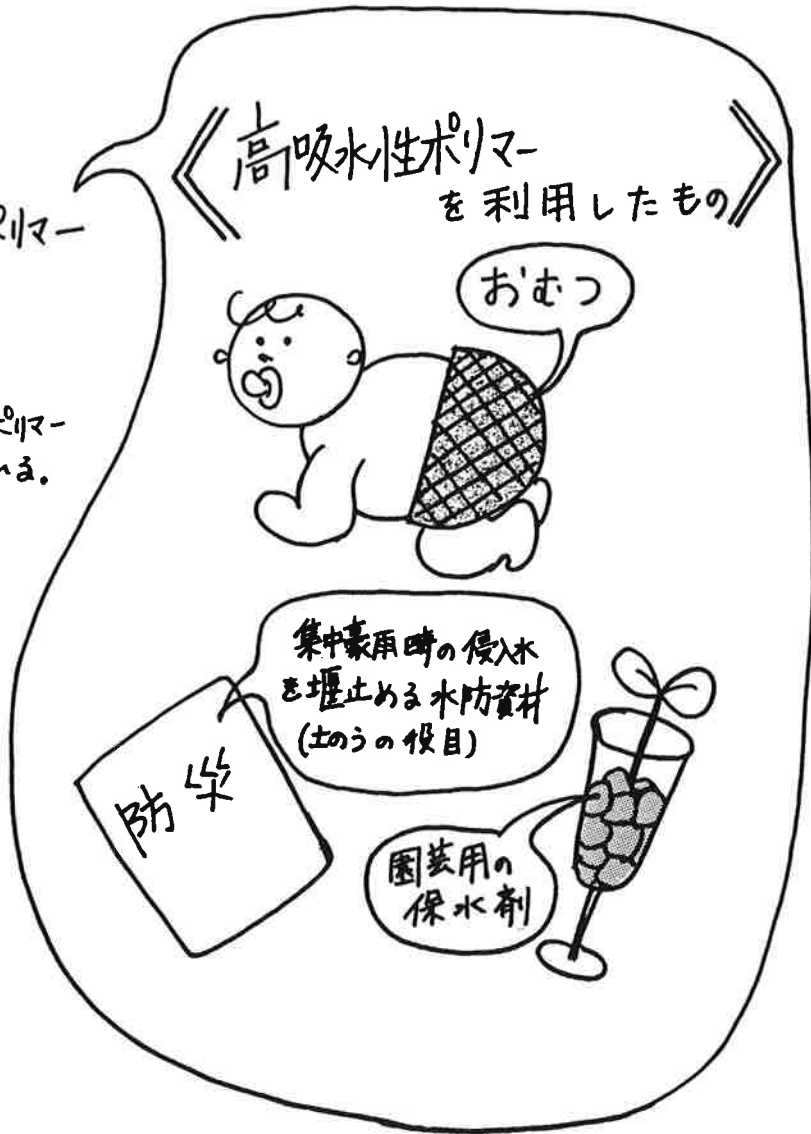 ポリマー
ポリマー
いる。
《高吸水性ポリマー
を利用したもの》
おむつ
集中豪雨時の侵入水
を堰止める水防資材
(土のうの役目)
防災
園芸用の
保水剤